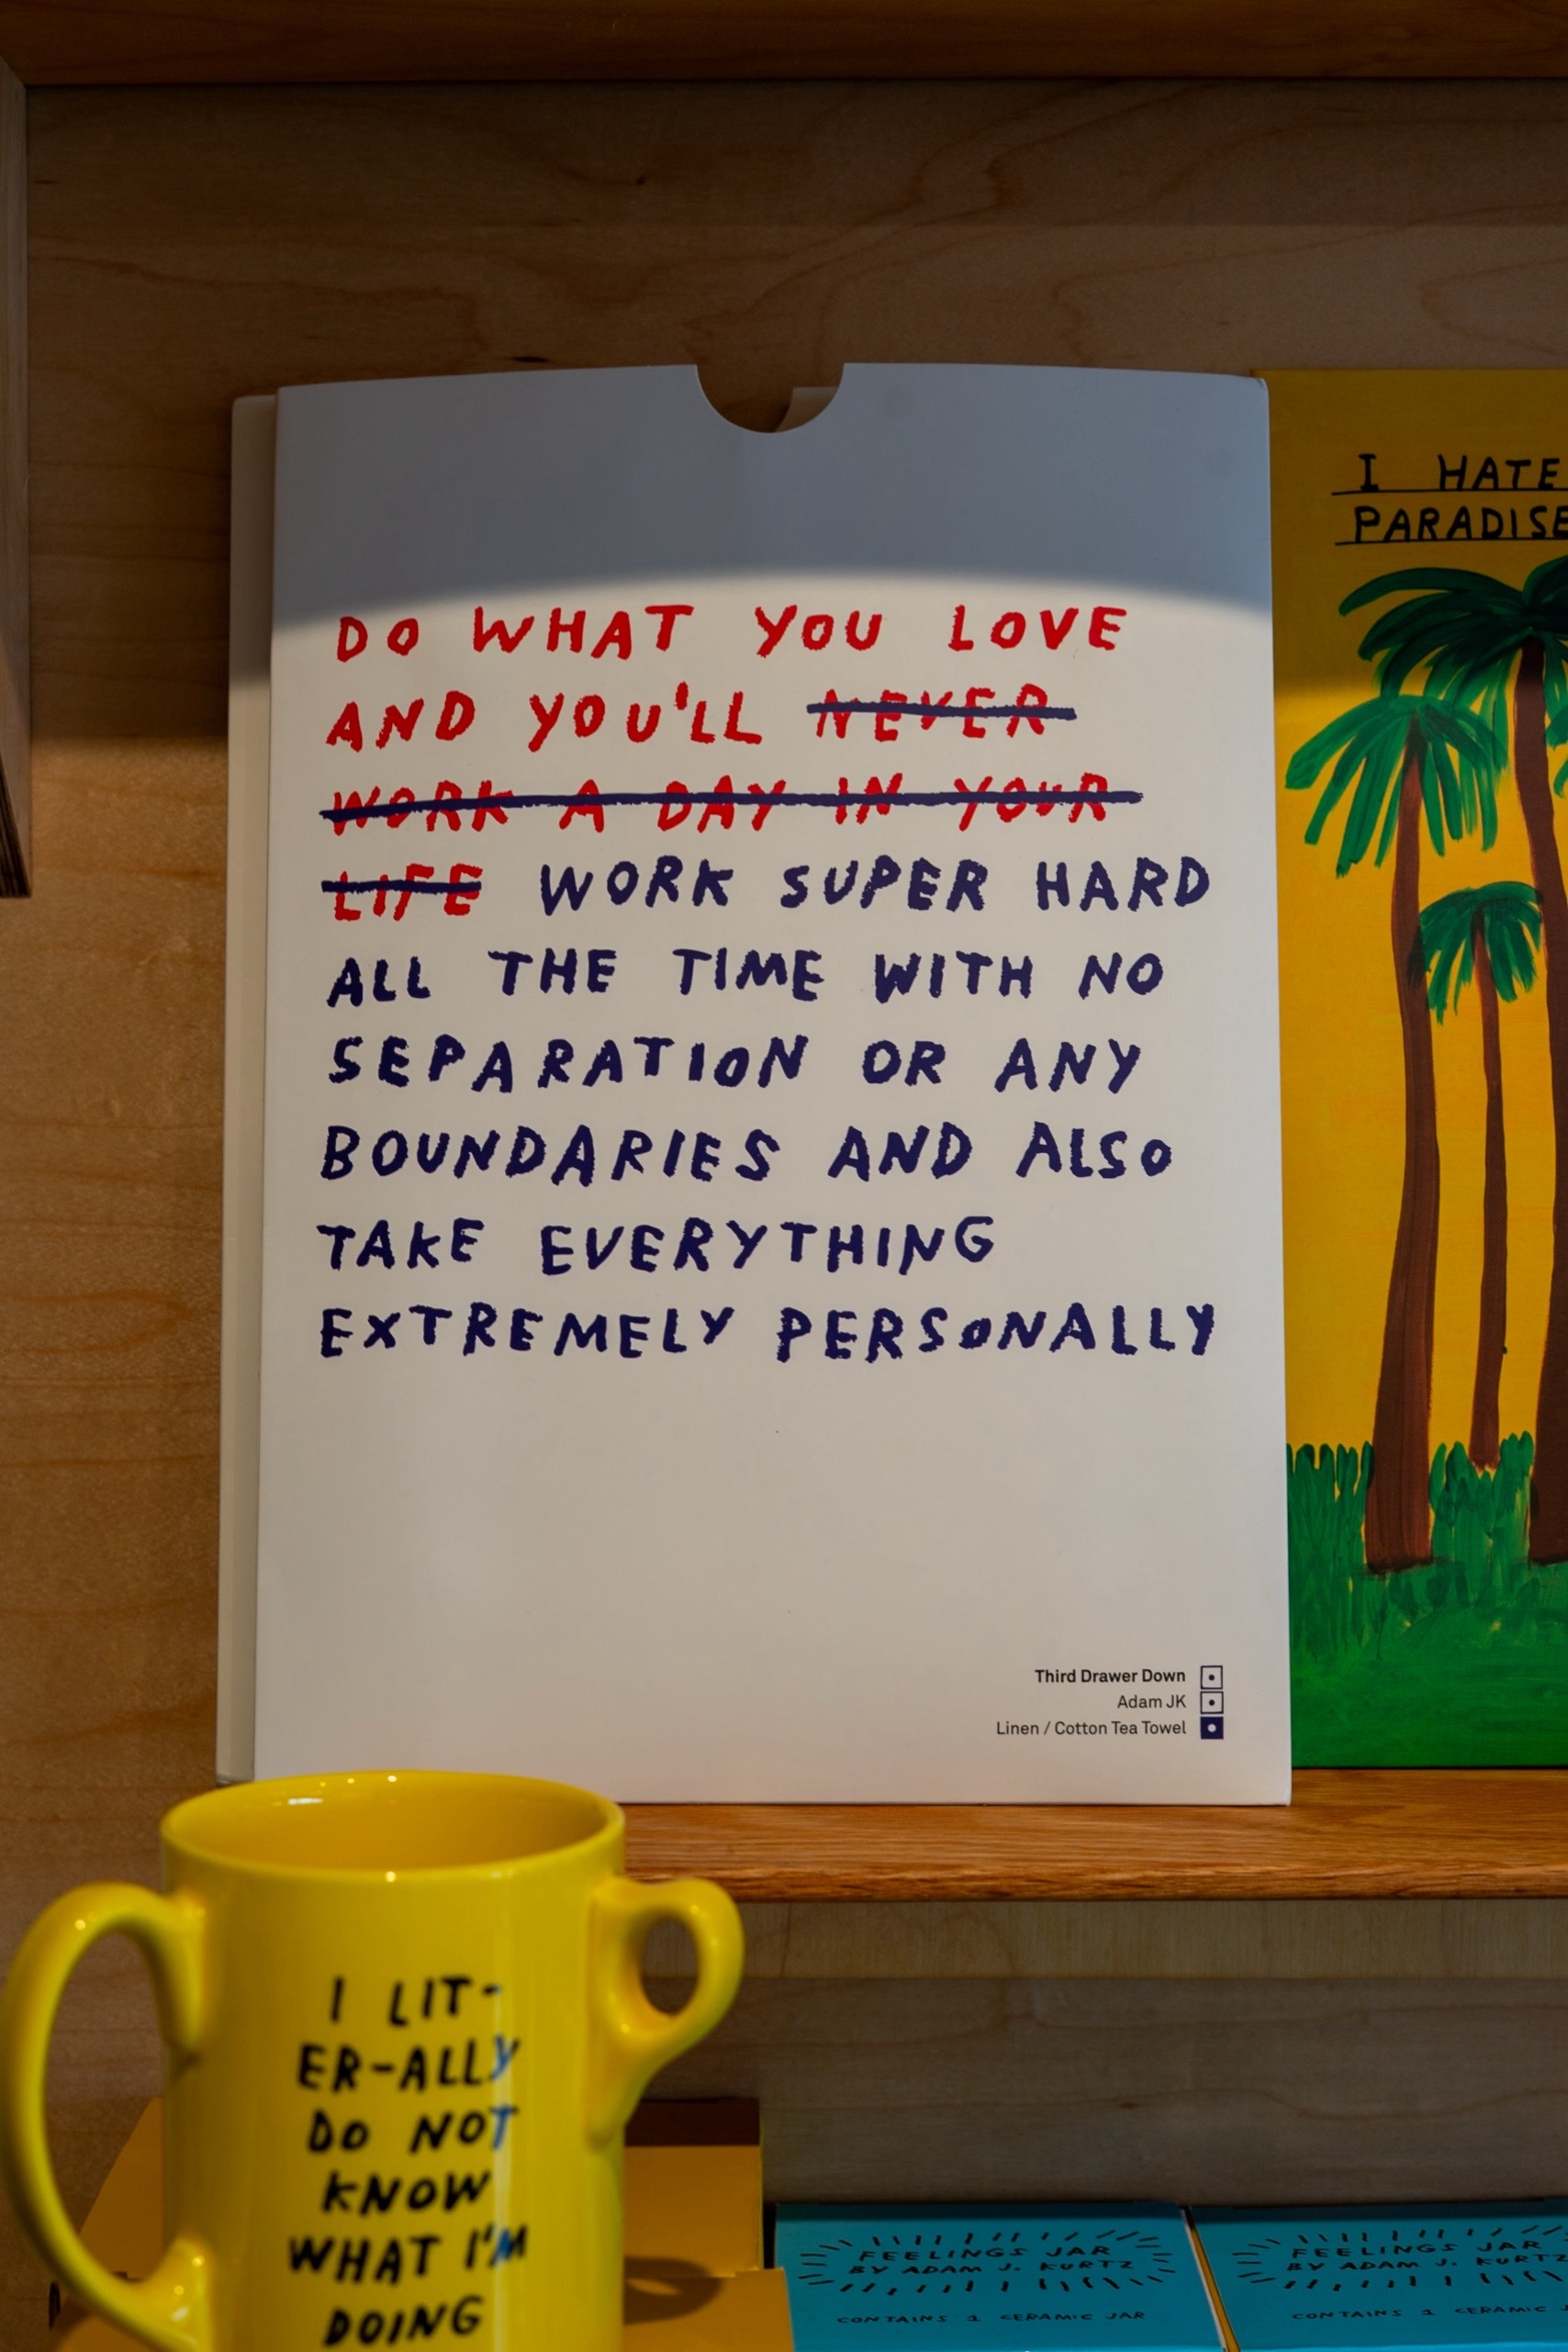 DO WHAT YOU LOVE
AND YOU'LL NEVER
WORK A DAY IN YOUR
LIFE WORK SUPER HARD
ALL THE TIME WITH NO
SEPARATION OR ANY
BOUNDARIES AND ALSO
TAKE EVERYTHING
EXTREMELY PERSONALLY
Third Drawer Down
Adam JK
Linen / Cotton Tea Towel
I HATE
PARADISE
I LIT-
ER-ALLY
DO NOT
KNOW
WHAT I'M
DOING
FEELINGS JAR
BY ADAM J. KURTZ
CONTAINS 1 CERAMIC JAR
FEELINGS JAR
BY ADAM J. KURTZ
CONTAINS 1 CERAMIC J